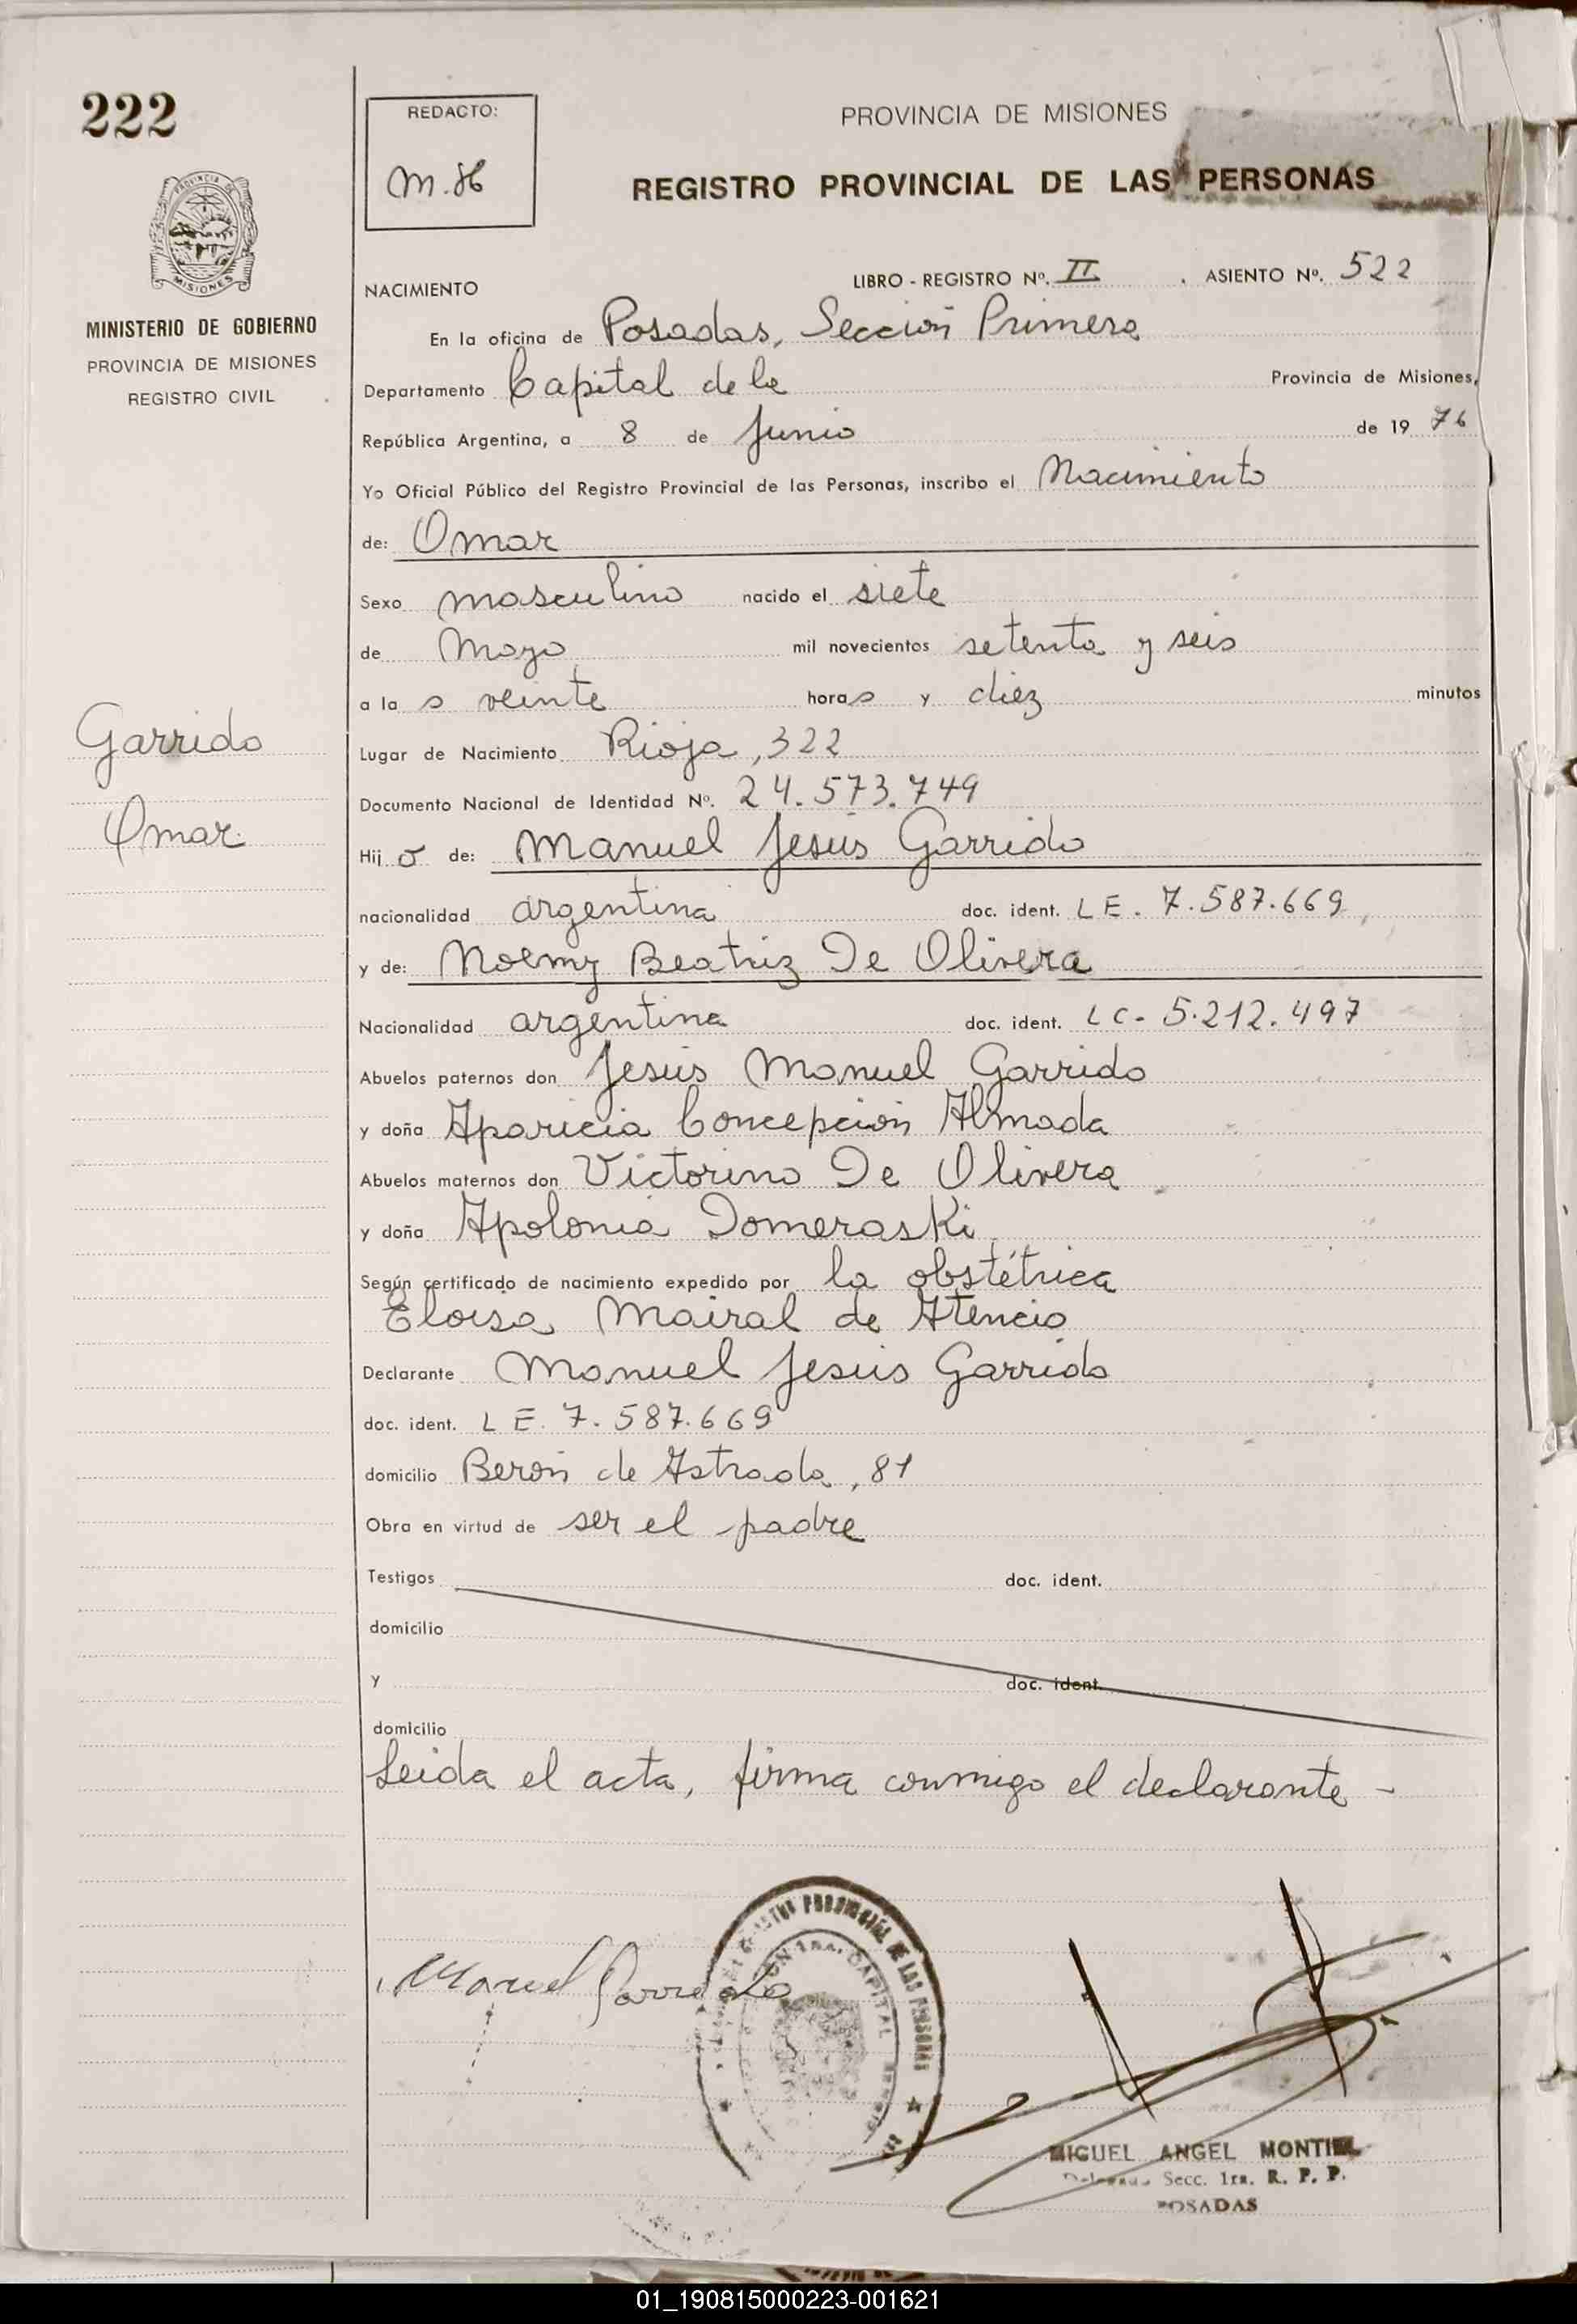 222
REDACTO:
PROVINCIA DE MISIONES
REGISTRO PROVINCIAL DE LAS PERSONAS
PROVINCIA DE
MISIONES
MINISTERIO DE GOBIERNO
PROVINCIA DE MISIONES
REGISTRO CIVIL
LIBRO - REGISTRO Nº. II . ASIENTO Nº. 522
NACIMIENTO
En la oficina de Posadas, Sección Primera
Departamento Capital de la Provincia de Misiones,
República Argentina, a 8 de Junio de 19 76
Yo Oficial Público del Registro Provincial de las Personas, inscribo el Nacimiento
de: Omar
Sexo masculino nacido el siete
de Mayo mil novecientos setenta y seis
a la s veinte horas y diez minutos
Garrido
Omar.
Lugar de Nacimiento Rioja, 322
Documento Nacional de Identidad Nº. 24.573.749
Hij o de: Manuel Jesús Garrido
nacionalidad argentina doc. ident. LE. 7.587.669,
y de: Noemy Beatriz De Olivera
Nacionalidad argentina doc. ident. LC- 5.212.497
Abuelos paternos don Jesús Manuel Garrido
y doña Aparicia Concepción Almada
Abuelos maternos don Victorino De Olivera
y doña Apolonia Domeraski
Según certificado de nacimiento expedido por la obstétrica
Eloisa Mairal de Atencio
Declarante Manuel Jesús Garrido
doc. ident. LE. 7.587.669
domicilio Berón de Astrada, 81
Obra en virtud de ser el padre
Testigos doc. ident.
domicilio
y doc. ident.
domicilio
Leida el acta, firma conmigo el declarante -
Manuel Garrido
PROVINCIAL DE LAS PERSONAS
1ra. CAPITAL
MIGUEL ANGEL MONTIEL
Delegado Secc. 1ra. R. P. P.
POSADAS
01_190815000223-001621